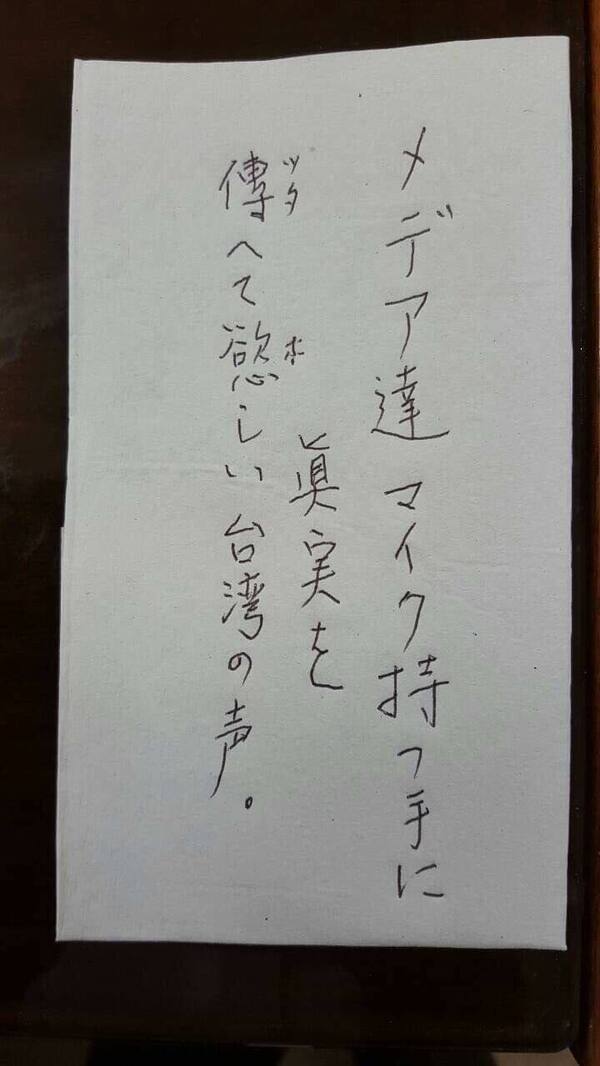 メデア達マイク持つ手に
眞実を
傳へて欲しい台湾の声。
ツタ
ホ